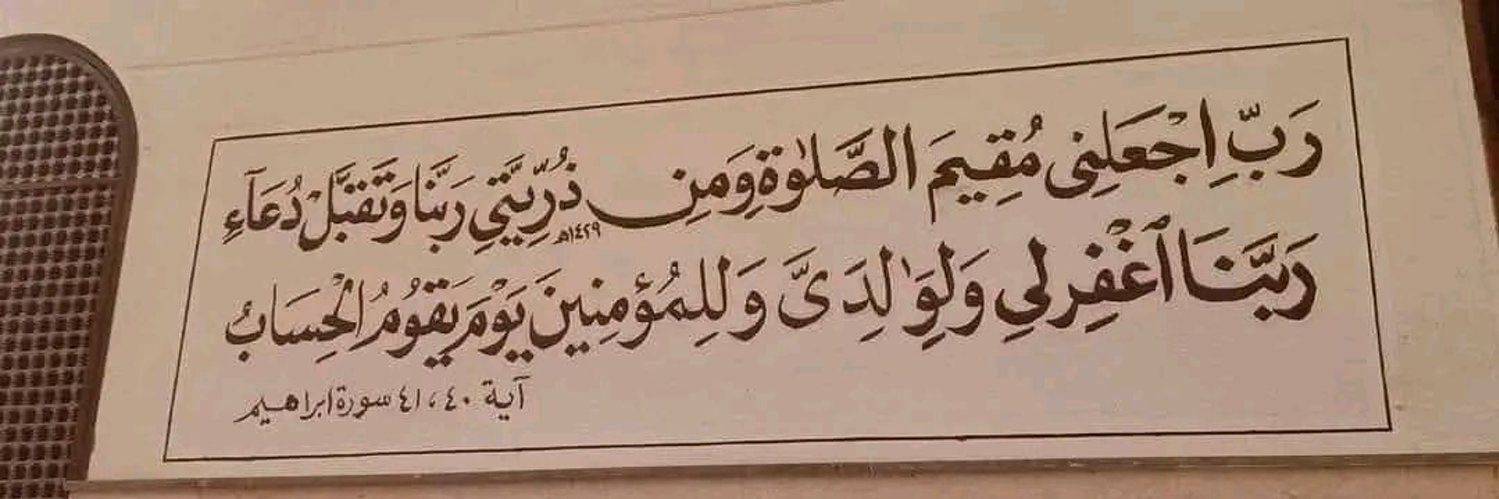 رَبِّ اِجْعَلِنِى مُقِيمَ الصَّلَوٰةِ وَمِن ذُرِّيَّتِي رَبَّنَا وَتَقَبَّلْ دُعَآءِ
١٤٢٩هـ
رَبَّنَا ٱغْفِرْ لِي وَلِوَٰلِدَىَّ وَلِلْمُؤْمِنِينَ يَوْمَ يَقُومُ الْحِسَابُ
آية ٤٠، ٤١ سورة ابراهيم